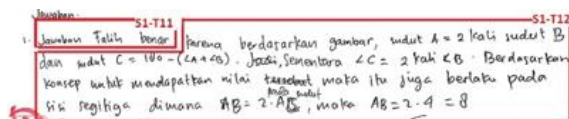 Jawaban:
S1-T11 S1-T12
1. Jawaban Talih benar karena berdasarkan gambar, sudut A = 2 kali sudut B
dan sudut C = 180 - (∠A + ∠B). Jadi, sementara ∠C = 2 kali ∠B. Berdasarkan
konsep untuk mendapatkan nilai maka itu juga berlaku pada
sisi segitiga dimana AB = 2 · , maka AB = 2 · 4 = 8